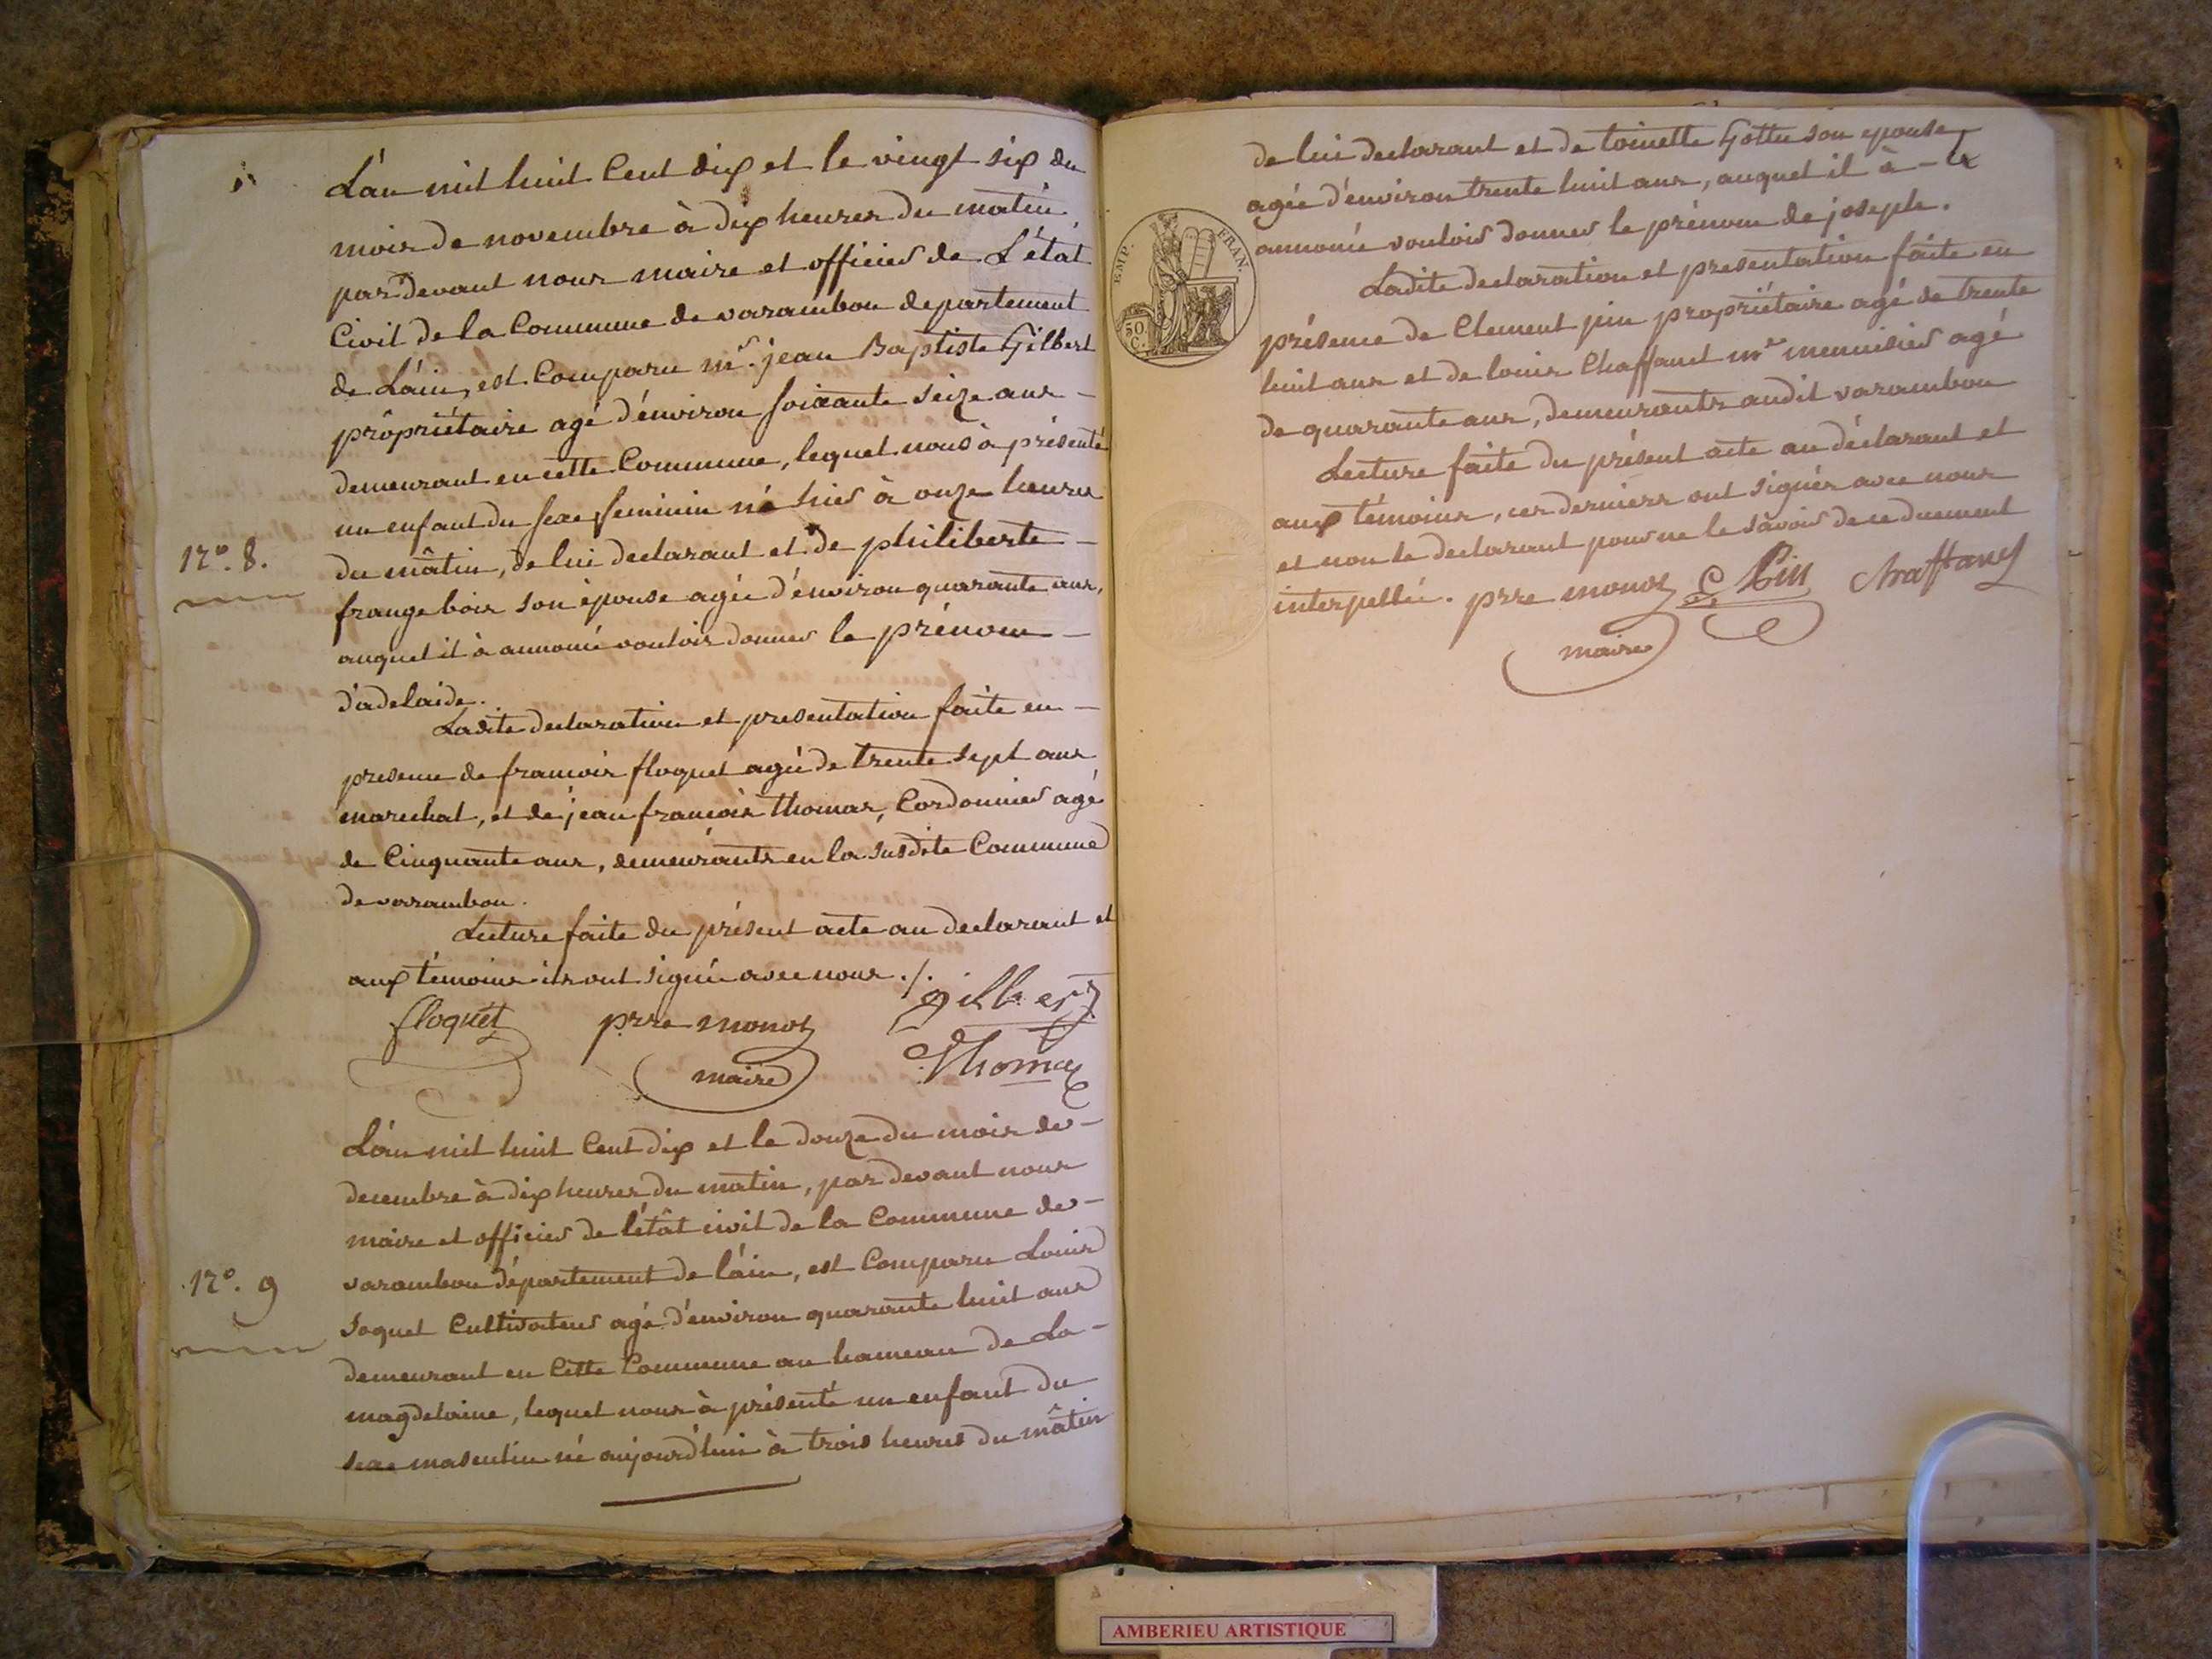 L'an mil huit Cent dix et le vingt six du
mois de novembre à dix heures du matin
pardevant nous maire et officier de L'état
Civil de la Commune de varambon departement
de L'ain, est Comparu mr. jean Baptiste Gilbert
propriétaire agé d'environ soixante seize ans -
demeurant en cette Commune, lequel nous à présenté
un enfant du sexe feminin né hier à onze heures
N.o 8.
du mâtin, de lui declarant et de philiberte -
frangebois son épouse agée d'environ quarante ans,
auquel il à annoncé vouloir donner le prénom -
d'adelaide.
Ladite declaration et presentation faite en -
presence de francois floquet agée de trente sept ans
marechal, et de jean françois thomas, Cordonnier agé
de Cinquante ans, demeurants en la susdite Commune
de varambon.
Lecture faite du présent acte au declarant et
aux témoins ils ont signée avec nous ./.
floquet prre monoz gilbert
maire Thomas
L'an mil huit Cent dix et le douze du mois de -
decembre à dix heures du matin, par devant nous
maire et officier de l'état civil de la Commune de -
varambon département de l'ain, est Comparu Louis
N.o 9
soquet Cultivateur agé d'environ quarante huit ans
demeurant en Cette Commune au hameau de La -
magdelaine, lequel nous à présenté un enfant du
sexe masculin né aujourd'hui à trois heures du mâtin
de lui declarant et de toinette Gottu son epouse
agée d'environ trente huit ans, auquel il à -
annoncé vouloir donner le prénom de joseph.
EMP. FRAN.
50 C.
Ladite declaration et presentation faite en
présence de Clement pin propriétaire agé de trente
huit ans et de louis Chaffanet mre menuisier agé
de quarante ans, demeurants audit varambon
Lecture faite du présent acte au déclarant et
aux témoins, ces derniers ont signés avec nous
et non le declarant pour ne le sâvoir de ce duement
interpellé. prre monoz C Pin Chaffanet
maire
AMBERIEU ARTISTIQUE